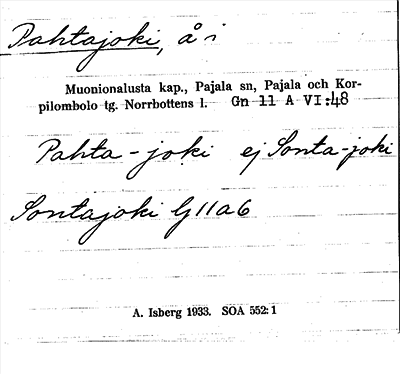 Pahtajoki, å i
Muonionalusta kap., Pajala sn, Pajala och Kor-
pilombolo tg. Norrbottens l. Gn 11 A VI:48
Pahta-joki ej Sonta-joki
Sontajoki G11a6
A. Isberg 1933. SOA 552:1